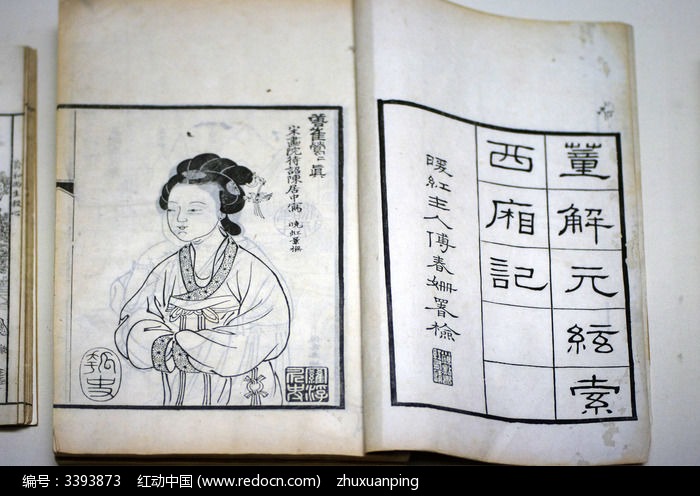 董解元絃索
西廂記
暖紅主人傅春姍署檢
崔鶯鶯真
宋畫院待詔陳居中寫
编号：3393873 红动中国 (www.redocn.com) zhuxuanping